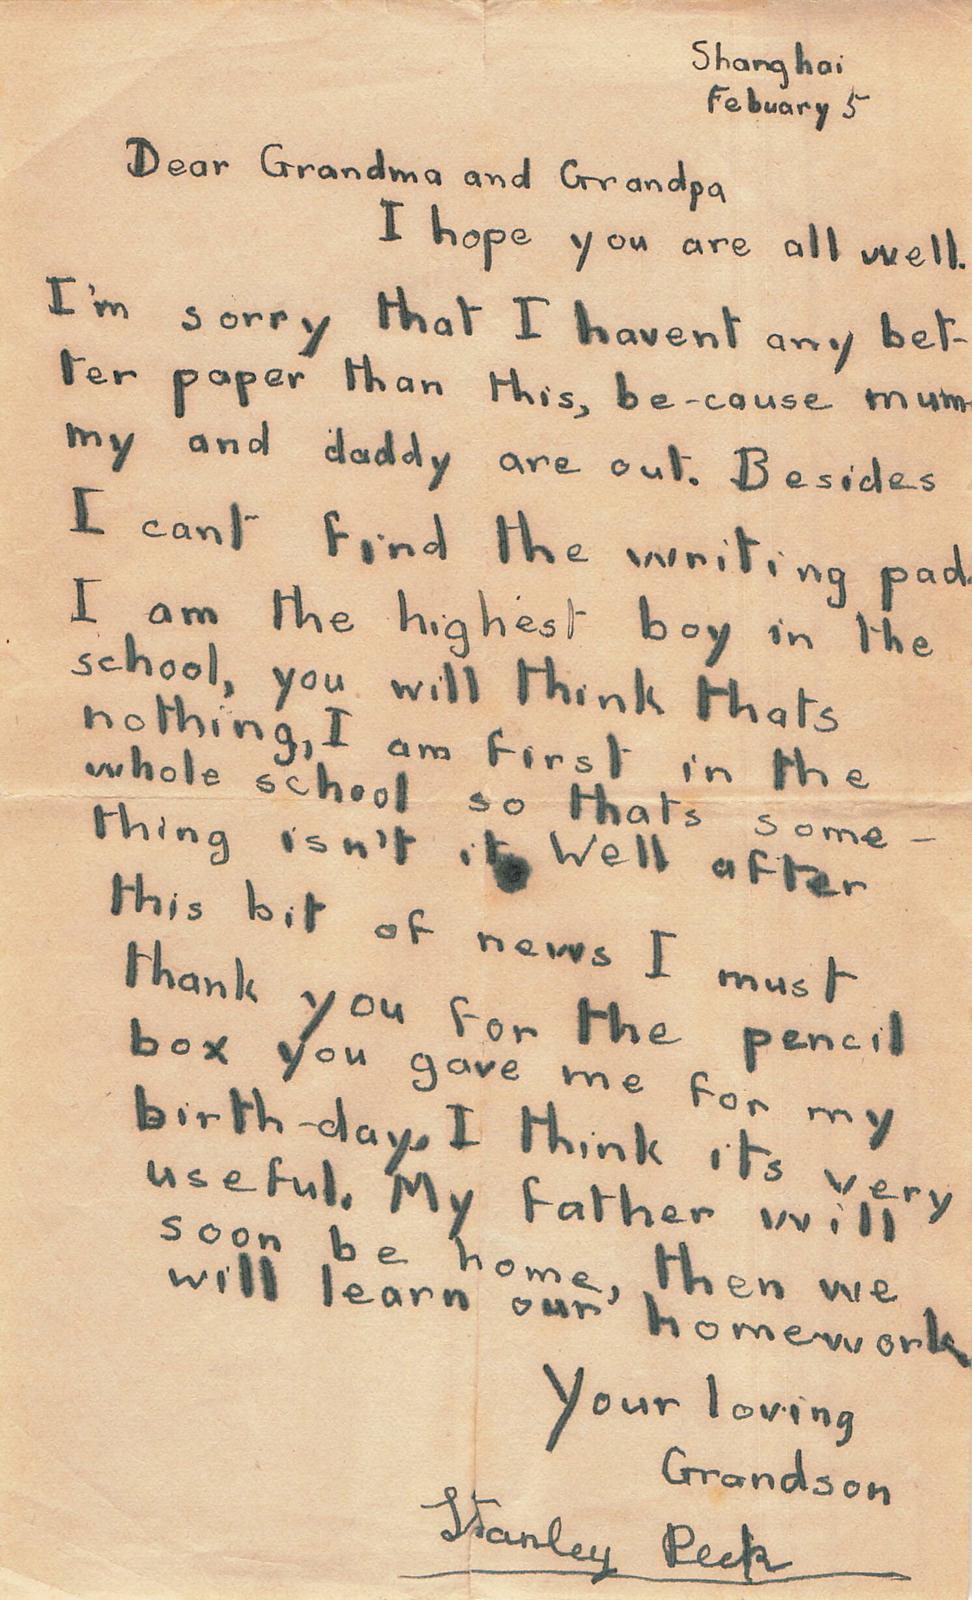 Shanghai
Febuary 5
Dear Grandma and Grandpa
I hope you are all well.
I'm sorry that I havent any bet-
ter paper than this, be-cause mum-
my and daddy are out. Besides
I cant find the writing pad.
I am the highest boy in the
school, you will think thats
nothing, I am first in the
whole school so thats some-
thing isn't it Well after
this bit of news I must
thank you for the pencil
box you gave me for my
birth-day. I think its very
useful. My father will
soon be home, then we
will learn our homework
Your loving
Grandson
Stanley Peck